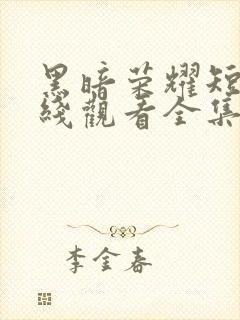 黑暗荣耀短
线觀看全集
李金春